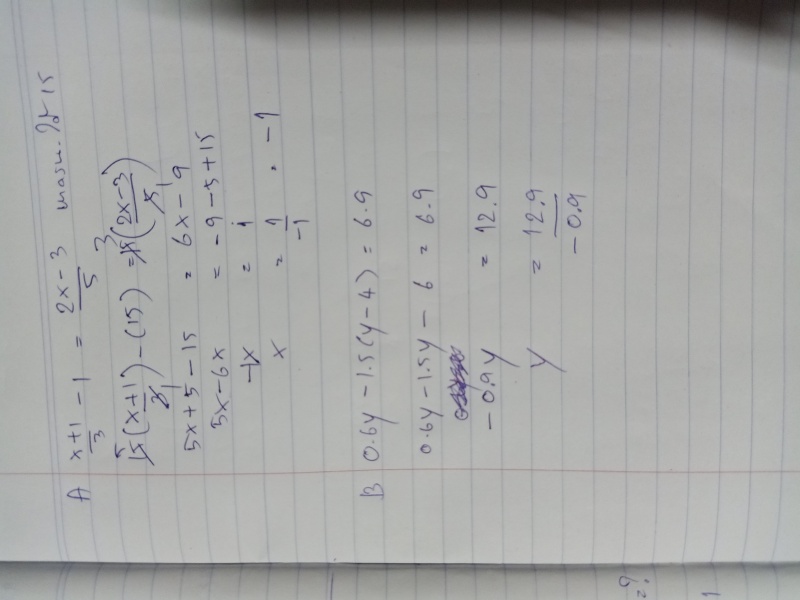 A (x+1)/3 - 1 = (2x-3)/5
15((x+1)/3) - (15) = 15((2x-3)/5)
5x+5-15 = 6x-9
5x-6x = -9-5+15
-1x = 1
x = 1/-1 = -1
B 0.6y-1.5(y-4) = 6.9
0.6y-1.5y-6 = 6.9
-0.9y = 12.9
y = 12.9/-0.9
=?
1